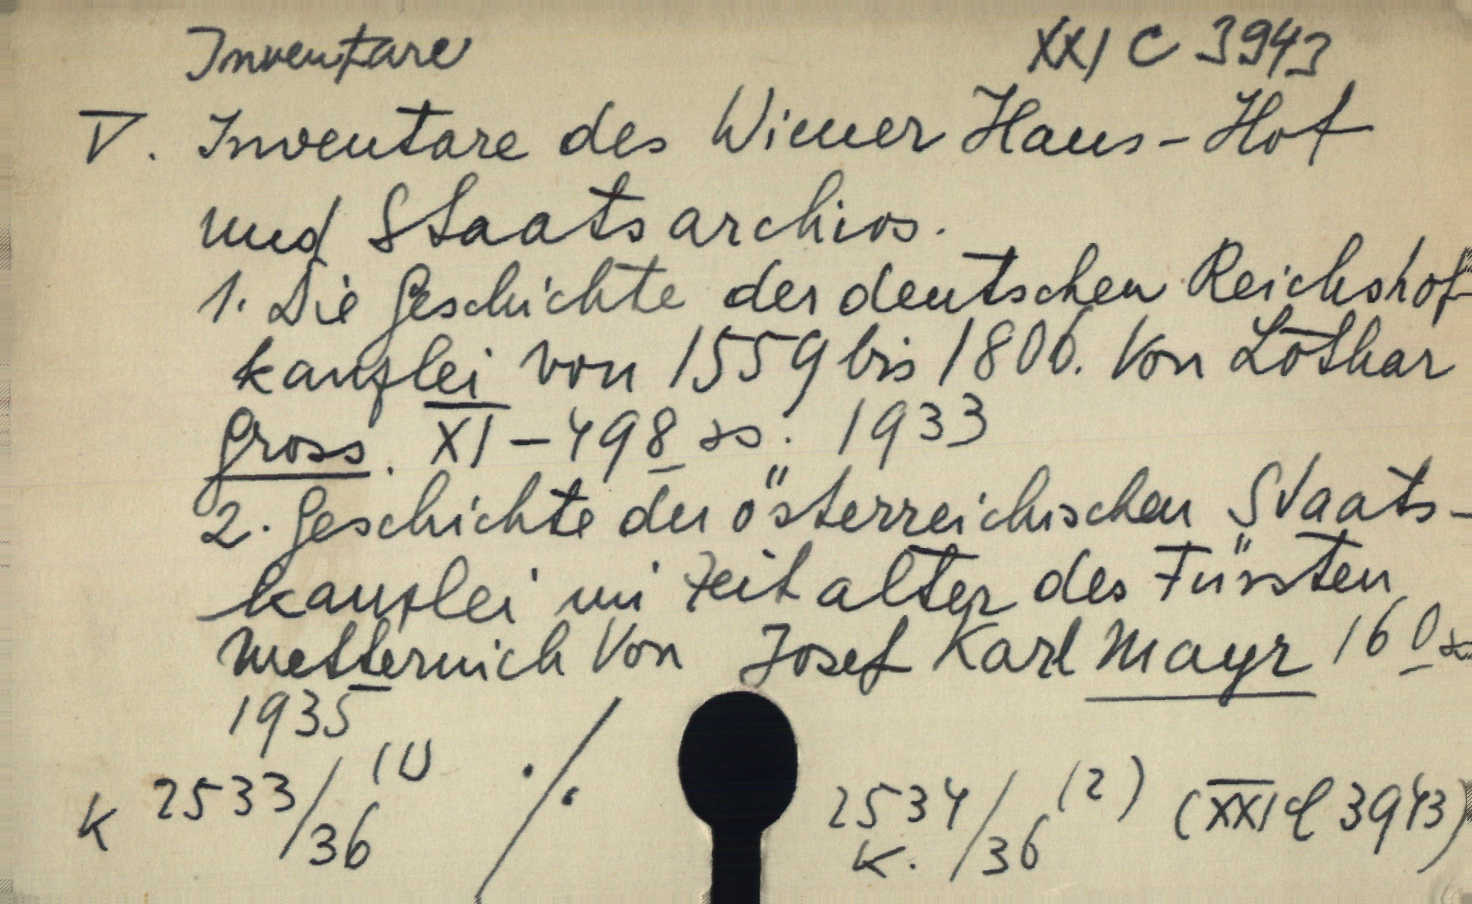 Inventare XXI C 3943
V. Inventare des Wiener Haus-Hof
und Staatsarchivs.
1. Die Geschichte der deutschen Reichshof
kanzlei von 1559 bis 1806. Von Lothar
Gross. XI-498 ss. 1933
2. Geschichte der österreichischen Staats-
kanzlei im Zeitalter des Fürsten
Metternich Von Josef Karl Mayr 160 s
1935
K 2533/36 (1) ./. 2534/36 (2) (XXI C 3943)
K.